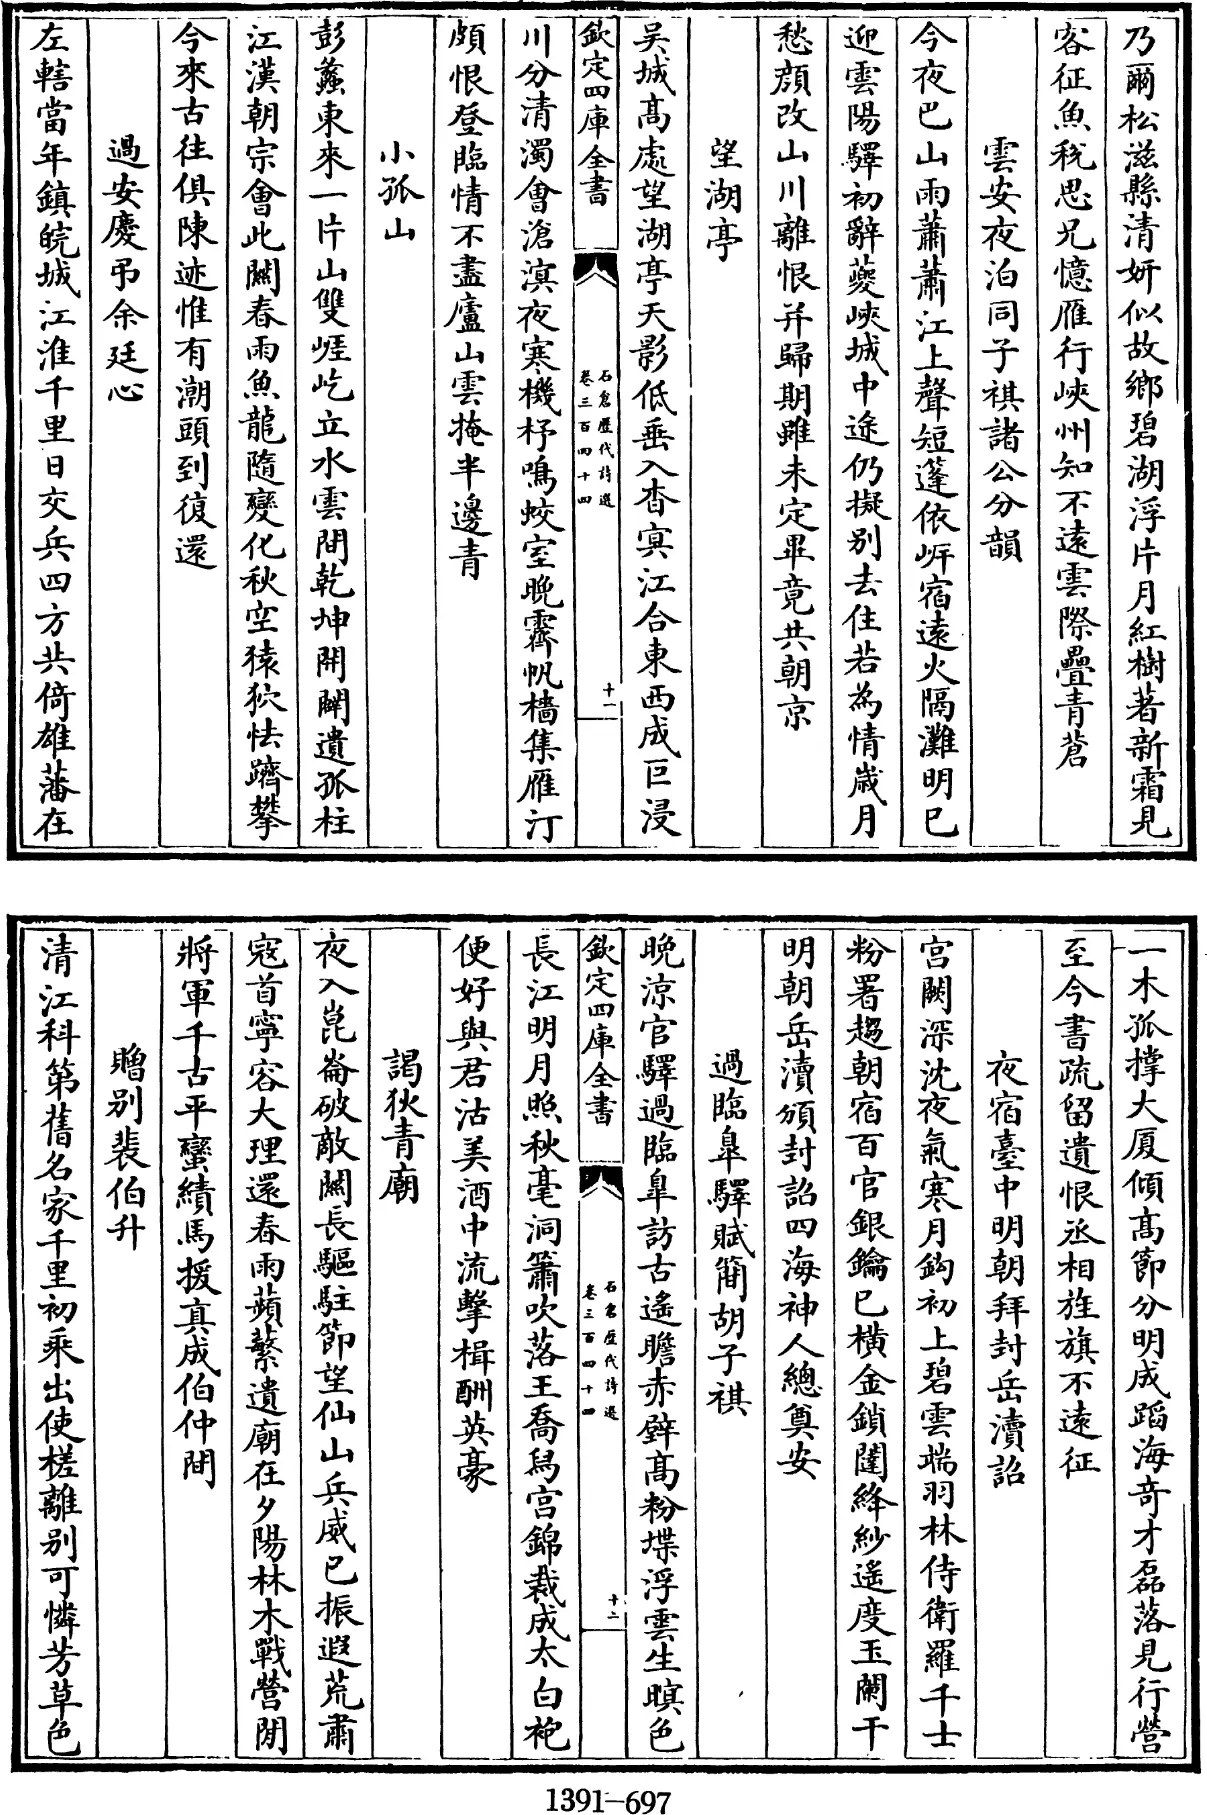 乃爾松滋縣清妍似故鄉碧湖浮片月紅樹著新霜見
客征魚稅思兄憶雁行峽州知不遠雲際疊青蒼
雲安夜泊同子祺諸公分韻
今夜巴山雨蕭蕭江上聲短蓬依岸宿遠火隔灘明已
迎雲陽驛初辭夔峽城中途仍擬别去住若為情歲月
愁顔改山川離恨并歸期雖未定畢竟共朝京
望湖亭
吴城髙處望湖亭天影低垂入杳冥江合東西成巨浸
欽定四庫全書
石倉歷代詩選
卷三百四十四
十一
川分清濁會滄溟夜寒機杼鳴蛟室晚霽帆檣集雁汀
頗恨登臨情不盡廬山雲掩半邊青
小孤山
彭蠡東來一片山雙崕屹立水雲間乾坤開闢遺孤柱
江漢朝宗會此闗春雨魚龍隨變化秋空猿狖怯躋攀
今來古往俱陳迹惟有潮頭到復還
過安慶弔余廷心
左轄當年鎮皖城江淮千里日交兵四方共倚雄藩在
一木孤撐大厦傾髙節分明成蹈海奇才磊落見行營
至今書疏留遺恨丞相旌旗不遠征
夜宿臺中明朝拜封岳瀆詔
宫闕深沈夜氣寒月鈎初上碧雲端羽林侍衛羅千士
粉署趨朝宿百官銀鑰已横金鎖闥絳紗遙度玉闌干
明朝岳瀆頒封詔四海神人總奠安
過臨臯驛賦簡胡子祺
晚涼官驛過臨臯訪古遙瞻赤壁髙粉堞浮雲生暝色
欽定四庫全書
石倉歷代詩選
卷三百四十四
十二
長江明月照秋毫洞簫吹落王喬舄宫錦裁成太白袍
便好與君沽美酒中流擊楫酬英豪
謁狄青廟
夜入崑崙破敵闗長驅駐節望仙山兵威已振遐荒肅
寇首寧容大理還春雨蘋蘩遺廟在夕陽林木戰營閒
將軍千古平蠻績馬援真成伯仲間
贈别裴伯升
清江科第舊名家千里初乘出使槎離别可憐芳草色
1391-697